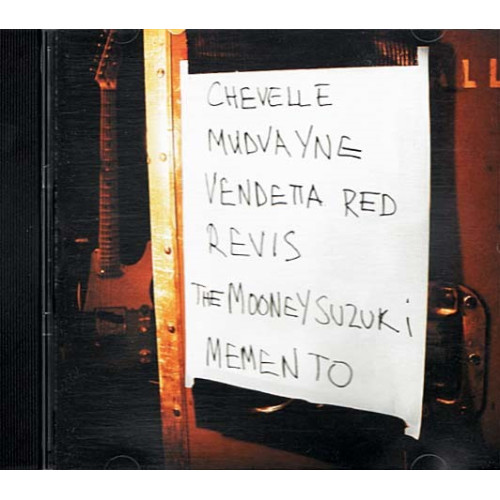 CHEVELLE
MUDVAYNE
VENDETTA RED
REVIS
THE MOONEY SUZUKI
MEMENTO
LL